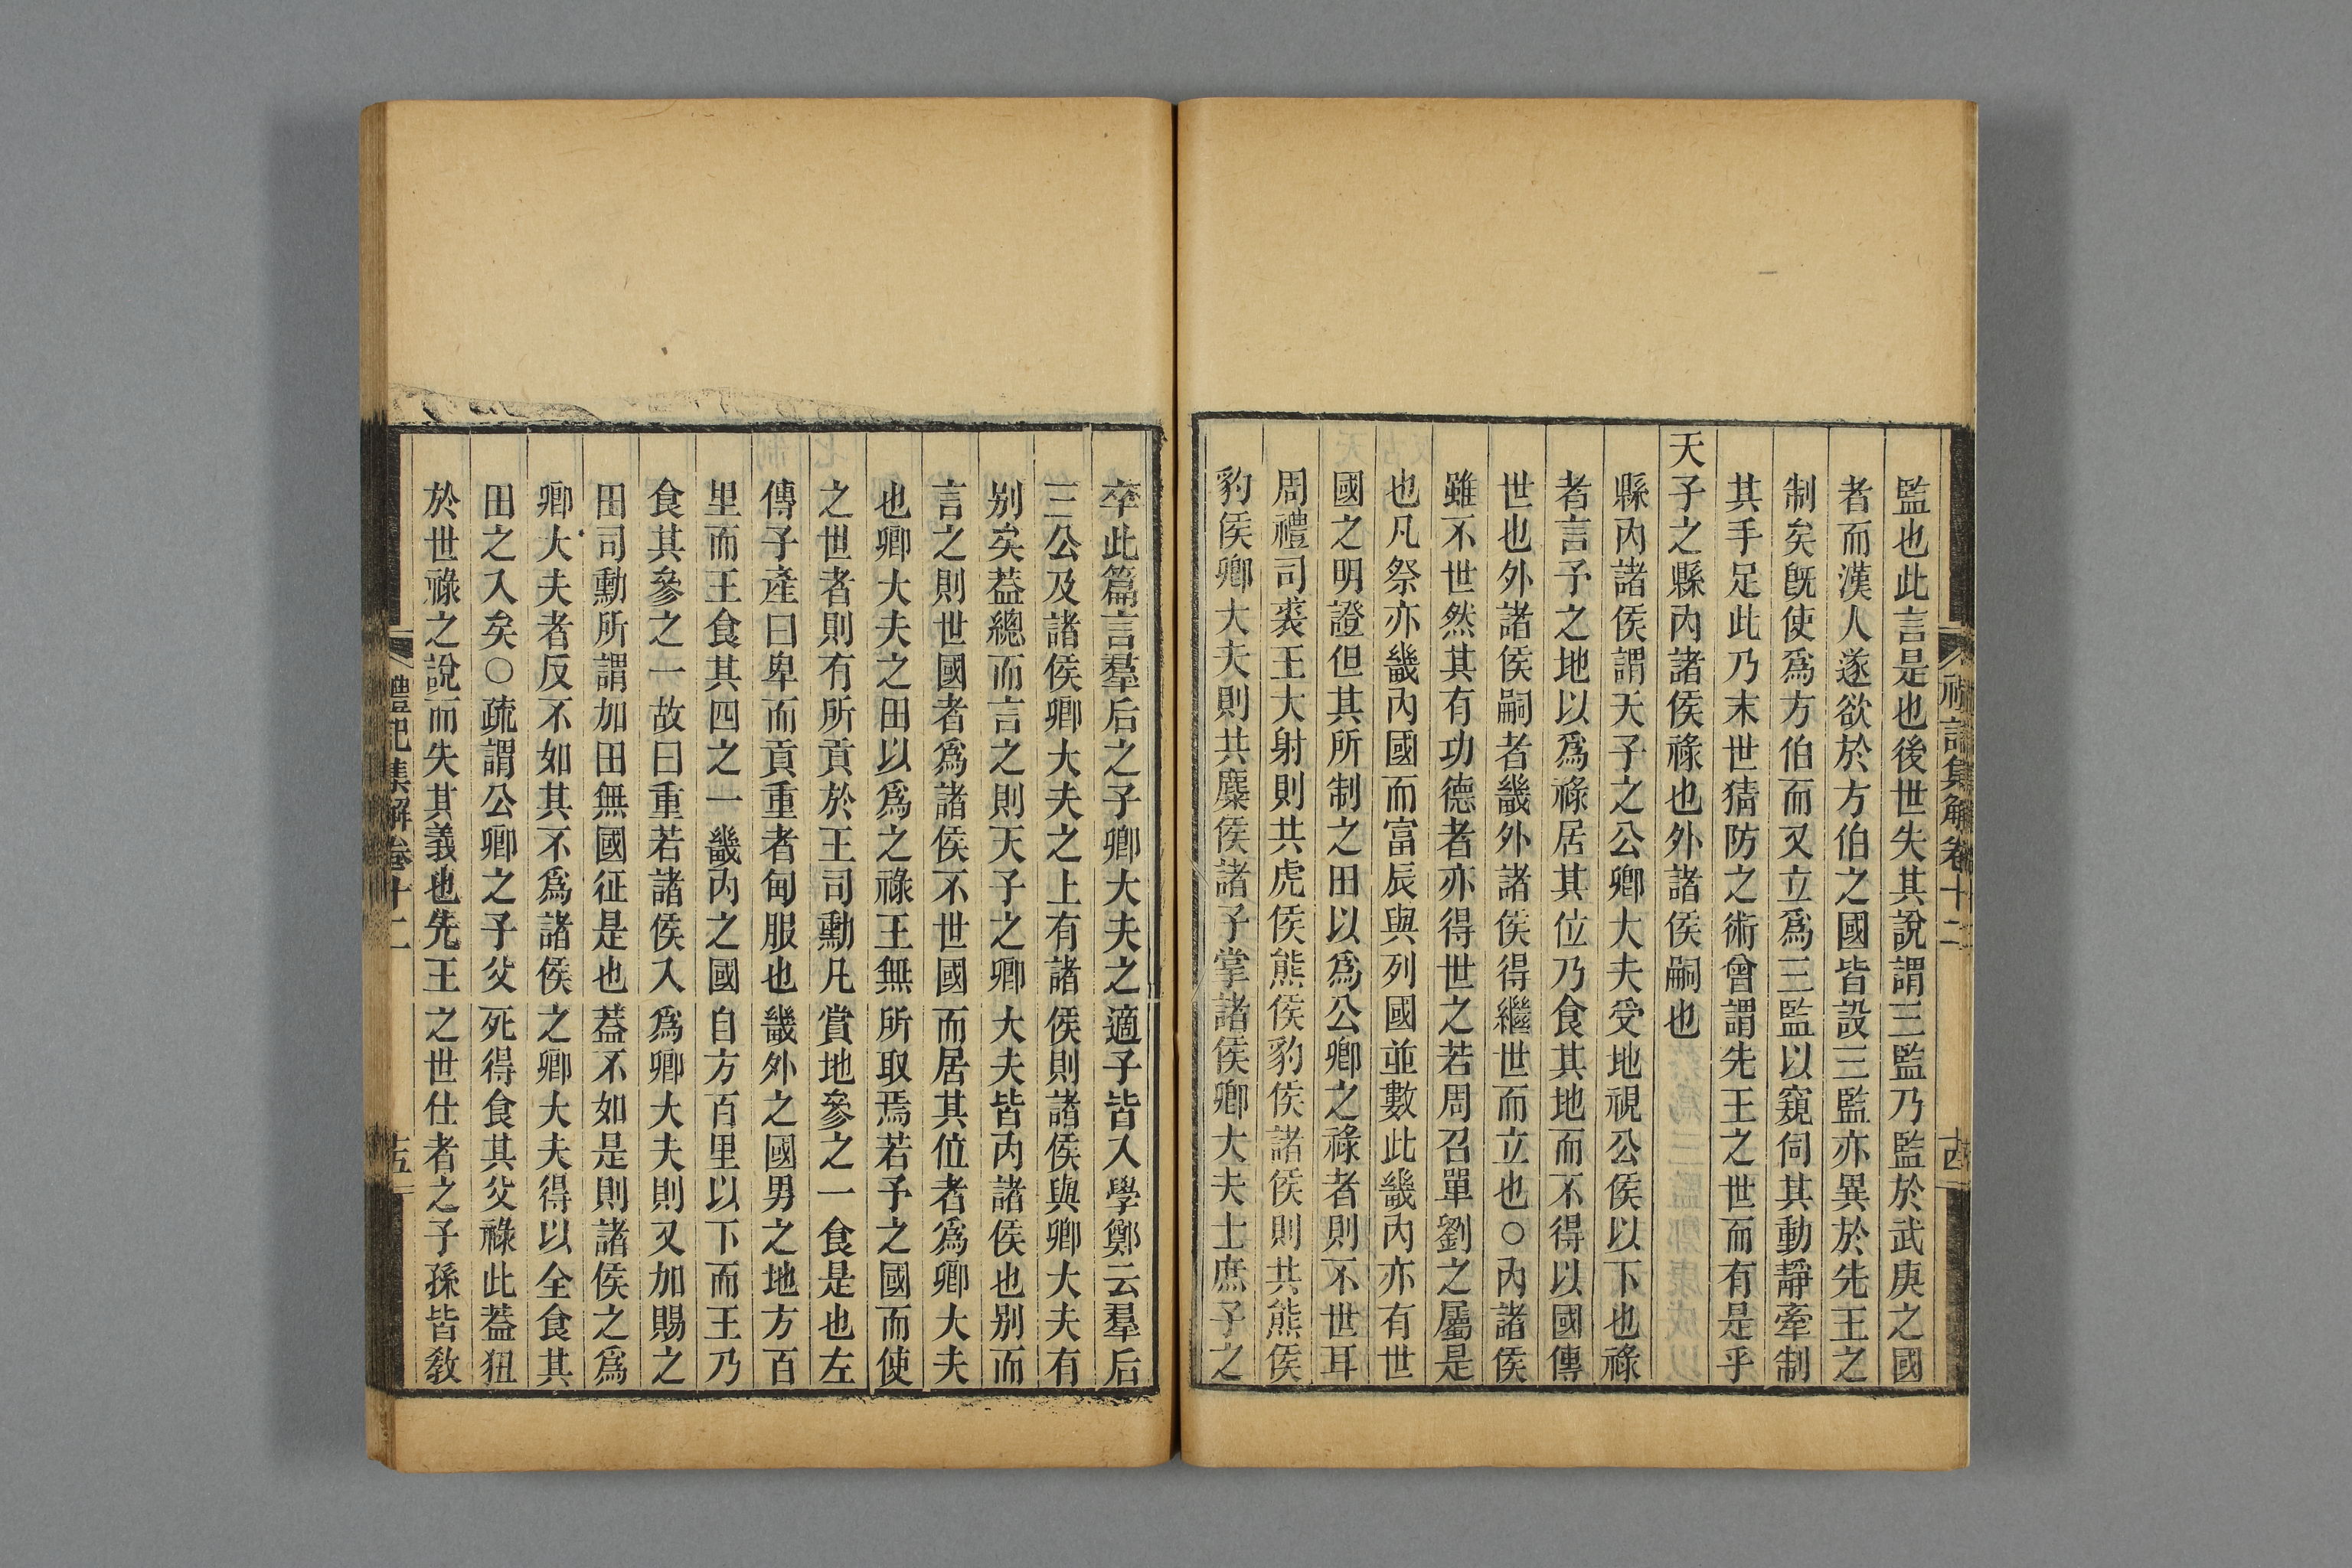 監也此言是也後世失其說謂三監乃監於武庚之國
者而漢人遂欲於方伯之國皆設三監亦異於先王之
制矣旣使爲方伯而又立爲三監以窺伺其動靜牽制
其手足此乃末世猜防之術曾謂先王之世而有是乎
天子之縣內諸侯祿也外諸侯嗣也
縣內諸侯謂天子之公卿大夫受地視公侯以下也祿
者言予之地以爲祿居其位乃食其地而不得以國傳
世也外諸侯嗣者畿外諸侯得繼世而立也○內諸侯
雖不世然其有功德者亦得世之若周召單劉之屬是
也凡祭亦畿內國而富辰與列國並數此畿內亦有世
國之明證但其所制之田以爲公卿之祿者則不世耳
周禮司裘王大射則共虎侯熊侯豹侯諸侯則共熊侯
豹侯卿大夫則共麋侯諸子掌諸侯卿大夫士庶子之
禮記集解卷十二
十四
卒此篇言羣后之子卿大夫之適子皆入學鄭云羣后
三公及諸侯卿大夫之上有諸侯則諸侯與卿大夫有
别矣葢總而言之則天子之卿大夫皆內諸侯也别而
言之則世國者爲諸侯不世國而居其位者爲卿大夫
也卿大夫之田以爲之祿王無所取焉若予之國而使
之世者則有所貢於王司勳凡賞地參之一食是也左
傳子產曰卑而貢重者甸服也畿外之國男之地方百
里而王食其四之一畿內之國自方百里以下而王乃
食其參之一故曰重若諸侯入爲卿大夫則又加賜之
田司勳所謂加田無國征是也葢不如是則諸侯之爲
卿大夫者反不如其不爲諸侯之卿大夫得以全食其
田之入矣○疏謂公卿之子父死得食其父祿此葢狃
於世祿之說而失其義也先王之世仕者之子孫皆教
禮記集解卷十二
十五